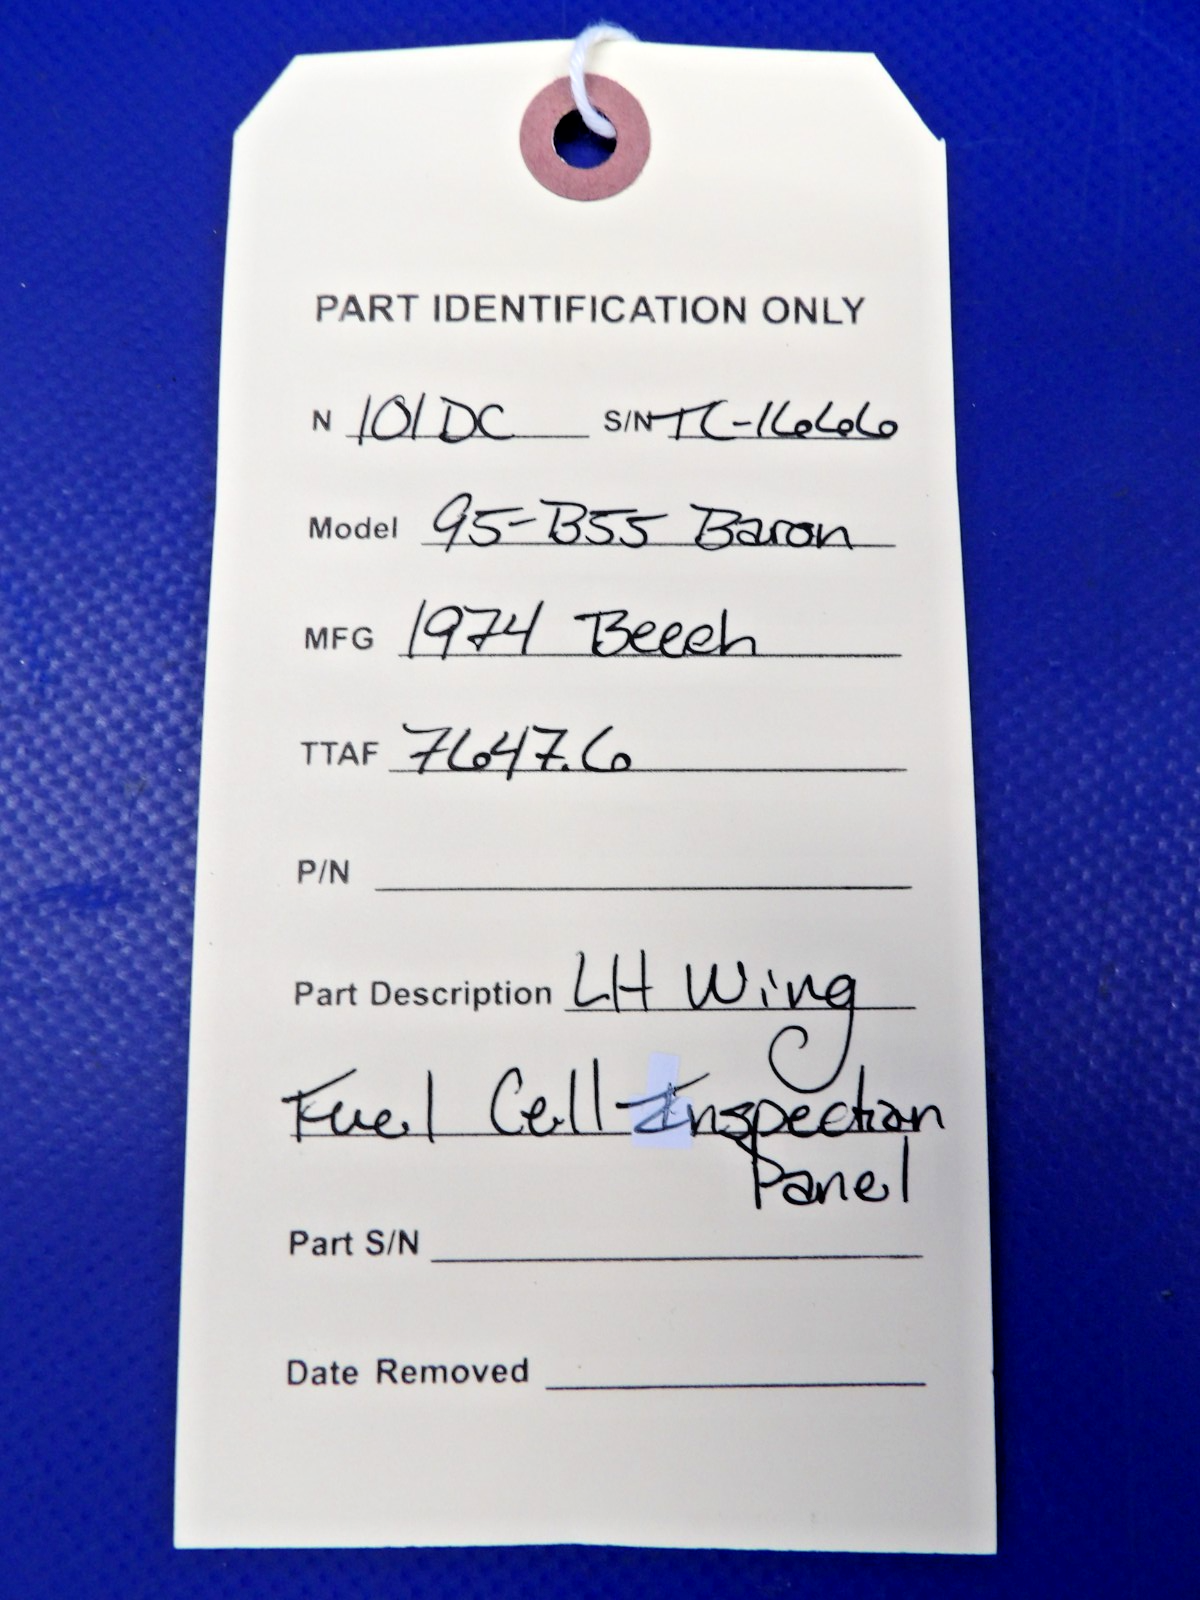 PART IDENTIFICATION ONLY
N 101DC S/N TC-1666
Model 95-B55 Baron
MFG 1974 Beech
TTAF 7647.6
P/N
Part Description LH Wing
Fuel Cell Inspection
Panel
Part S/N
Date Removed